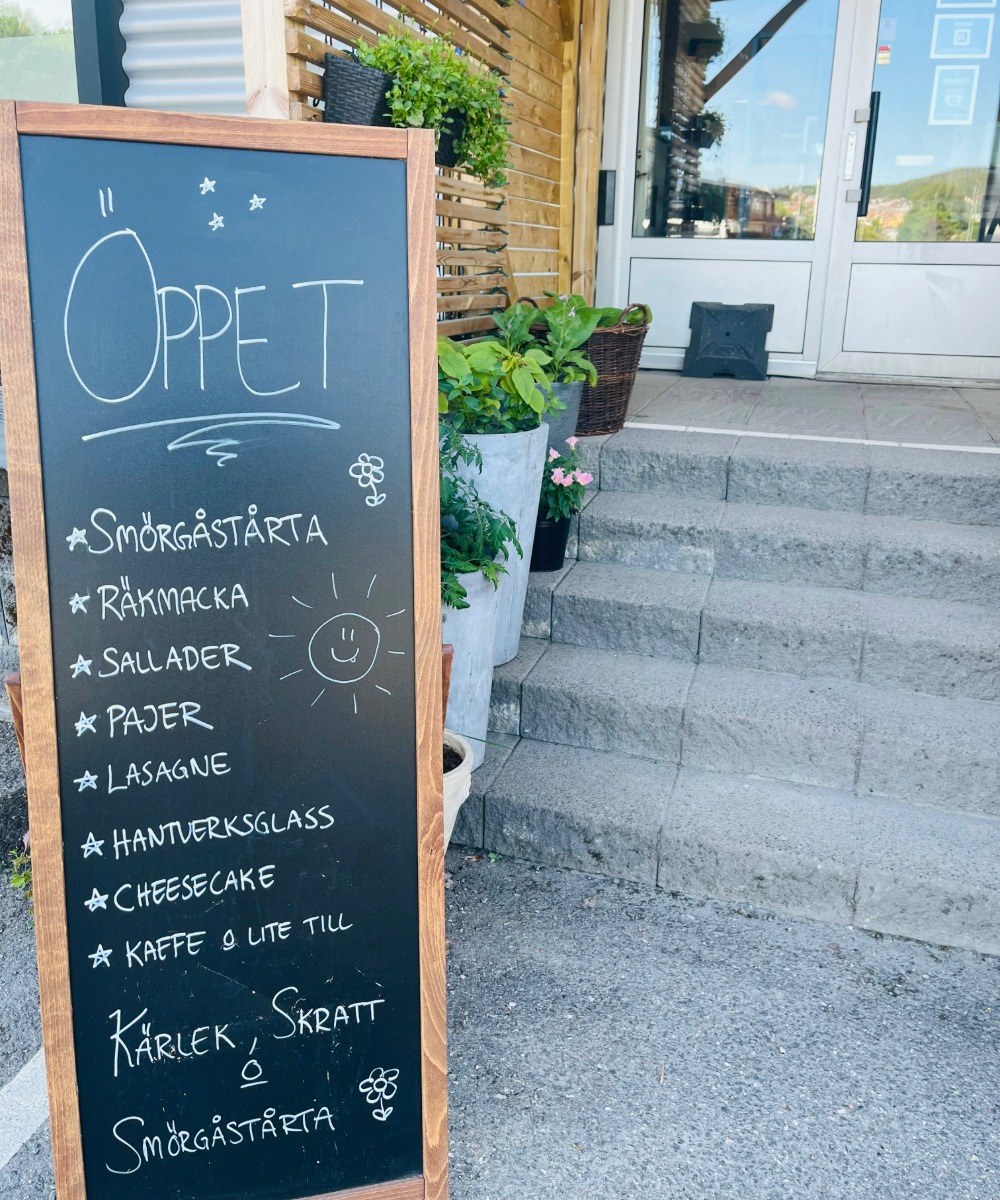 ÖPPET
SMÖRGÅSTÅRTA
RÄKMACKA
SALLADER
PAJER
LASAGNE
HANTVERKSGLASS
CHEESECAKE
KAFFE O LITE TILL
KÄRLEK, SKRATT
O
SMÖRGÅSTÅRTA